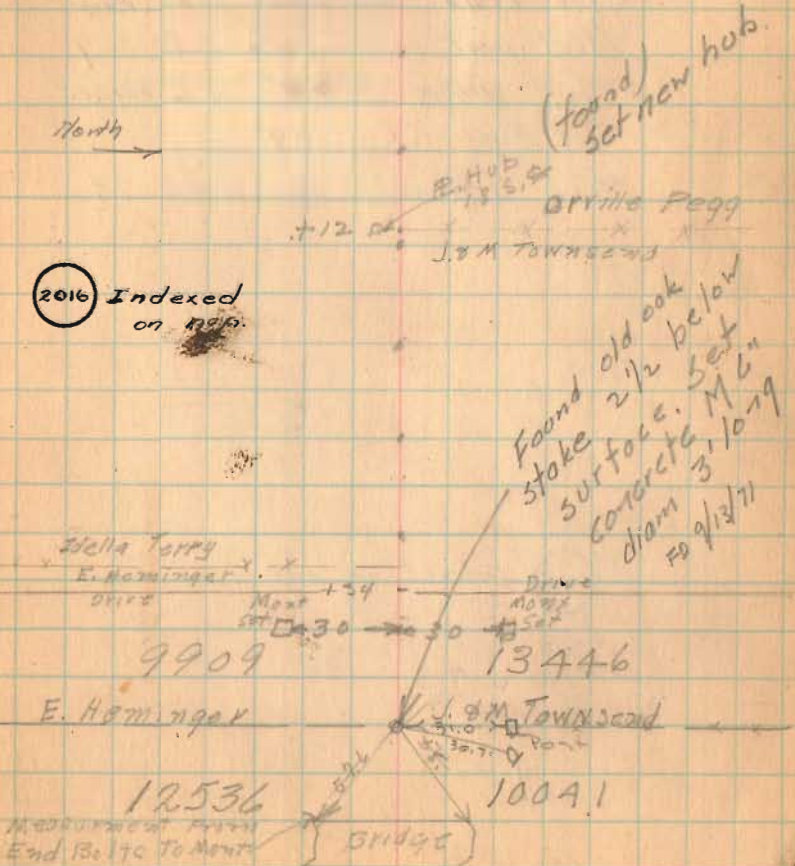 (found)
set new hub.
North
Orville Pegg
+12
J. & M Townsend
2016 Indexed
on
Found old oak
stake 2 1/2 below
surface. Set
concrete M 6"
diam 3' long
FD 9/13/71
Idella Terry
E. Hominger
Drive
+34
Drive
Mont
Set
30
30
Mont
Set
9909
13446
E. Hominger
J. & M Townsend
31.0
30.7
12536
10041
Measurment From
End Bolts To Mont
Bridge